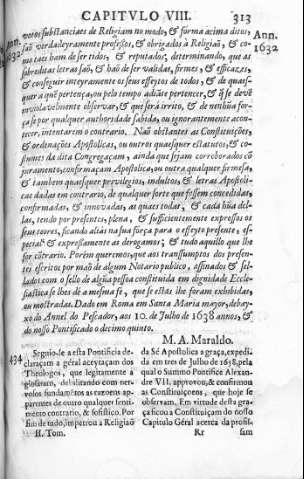 CAPITVLO VIII. 313
Ann. 1632
votos substanciaes de Religiam no modo, & forma acima ditos,
saõ verdadeyramente professos, & obrigados à Religiaõ, & co-
mo taes ham de ser tidos, & reputados, determinando, que as
sobreditas letras saõ, & haõ de ser validas, firmes, & efficazes,
& conseguir inteyramente os seus effeytos de todos, & de quaes-
quer a que pertença, ou pelo tempo adiãte pertencer, & q̃ se devẽ
inviolavelmente observar, & que serà irrito, & de nenhũa for-
ça se por qualquer authoridade sabida, ou ignorantemente acon-
tecer, intentarem o contrario. Naõ obstantes as Constituições,
& ordenações Apostolicas, ou outros quaesquer estatutos, & co-
stumes da dita Congregaçam, ainda que sejam corroborados cõ
juramento, confirmaçam Apostolica, ou outra qualquer firmesa,
& tambem quaesquer privilegios, indultos, & letras Apostoli-
cas dadas em contrario, de qualquer sorte que fossem concedidas,
confirmadas, & innovadas, as quaes todas, & cada hũa del-
las, tendo por presentes, plena, & sufficientemente expressos os
seus teores, ficando aliàs na sua força para o effeyto presente, es-
pecial, & expressamente as derogamos; & tudo aquillo que lhe
for cõtrario. Porèm queremos, que aos transsumptos dos presen-
tes escritos por maõ de algum Notario publico, assinados & sel-
lados com o sello de algũa pessoa constituida em dignidade Eccle-
siastica se lhes dè a mesma fè, que se estâs lhe foram exhibidas,
ou mostradas. Dado em Roma em Santa Maria mayor, debay-
xo do Annel do Pescador, aos 10. de Julho de 1638 annos, &
do nosso Pontificado o decimo quinto.
M. A. Maraldo.
434
Seguio-se a esta Pontificia de-
claraçam a géral aceytaçam dos
Theologos, que legitimamente a
glosáram, debilitando com ner-
volos fundamẽtos as razoens ap-
parentes de outro qualquer senti-
mento contrario, & sofistico. Por
fim de tudo, impetrou a Religiaõ
II. Tom.
da Sé Apostolica a graça, expedi-
da em tres de Julho de 1658, pela
qual o Summo Pontifice Alexan-
dre VII. approvou, & confirmou
as Constituiçoens, que hoje se
observam. Em virtude desta gra-
ça ficou a Constituiçam do nosso
Capitulo Géral acerca da profis-
Rr sam